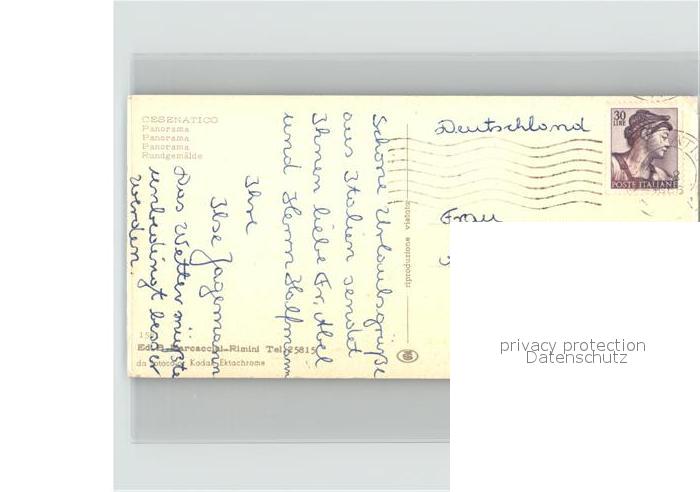 CESENATICO
Panorama
Panorama
Panorama
Rundgemälde
Schöne Urlaubsgrüße
aus Italien sendet
Ihnen liebe Fr. Abel
und Herrn Halfmann
Ihre
Ilse Jagemann
Das Wetter müßte
unbedingt besser
werden.
Deutschland
Frau
30
LIRE
POSTE ITALIANE
riproduzione vietata
Rimini Tel. 25815
da fotocolor Kodak Ektachrome
privacy protection
Datenschutz